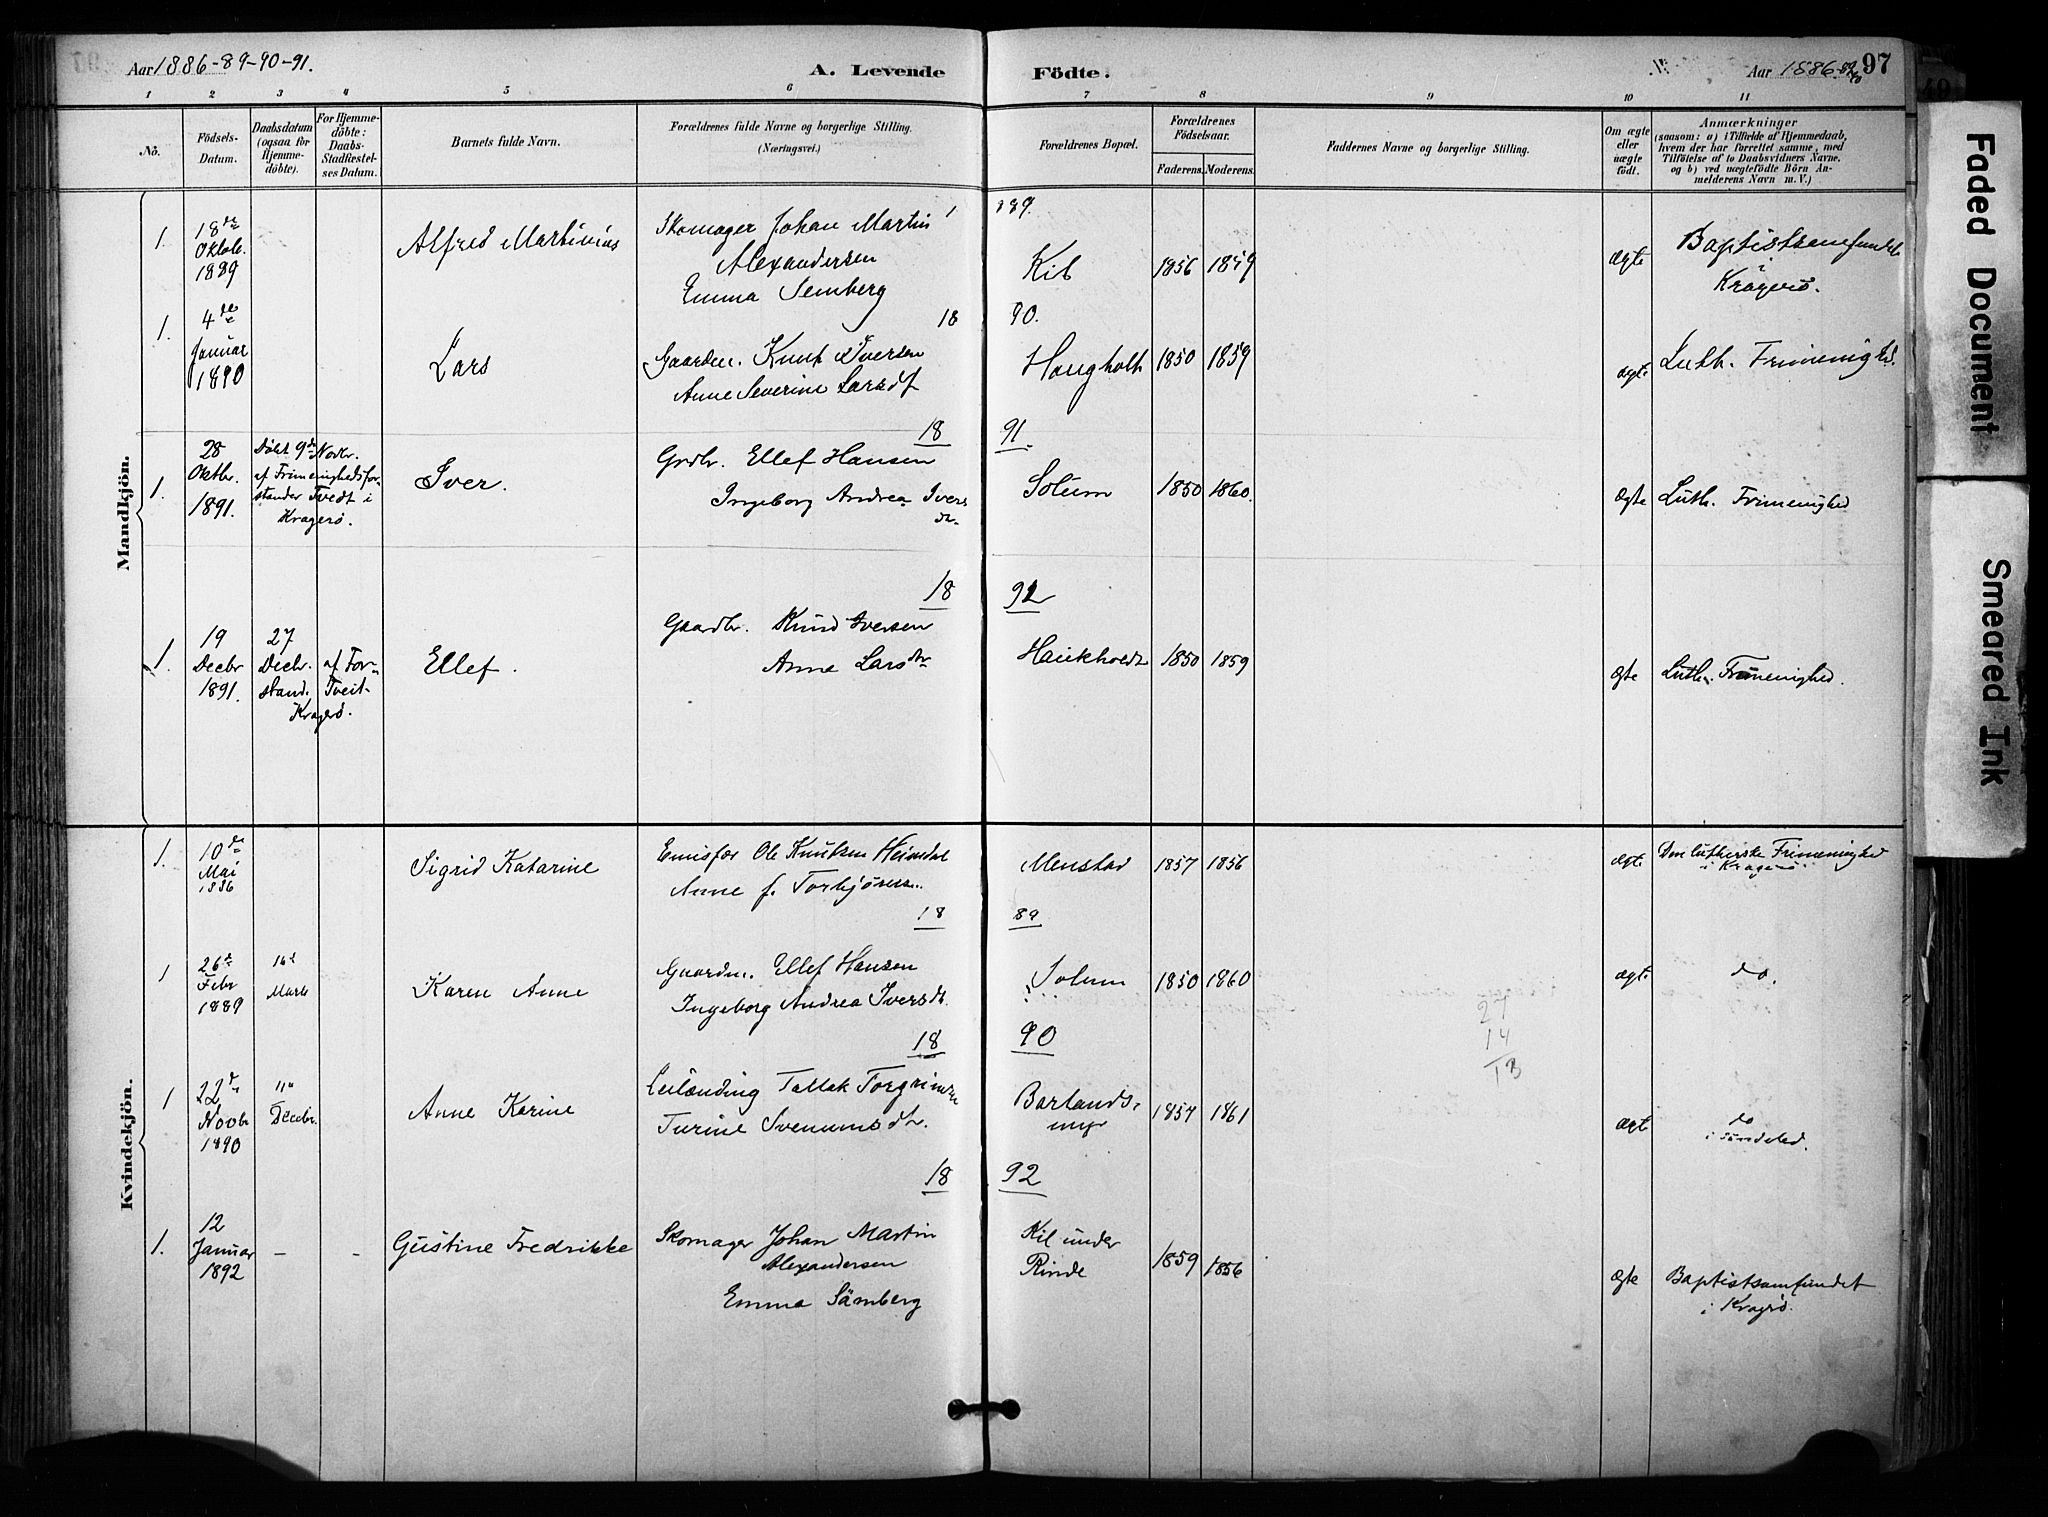 Aar 1886-89-90-91.
A. Levende Födte.
Aar 1886-89-90 97
1 2 3 4 5 6 7 8 9 10 11
No.
Födsels-Datum.
Daabsdatum (ogsaa for Hjemme-döbte).
For Hjemme-döbte: Daabs-Stadfæstel-ses Datum.
Barnets fulde Navn.
Forældrenes fulde Navne og borgerlige Stilling. (Næringsvei.)
Forældrenes Bopæl.
Forældrenes Födselsaar.
Faderens. Moderens.
Faddernes Navne og borgerlige Stilling.
Om ægte eller uægte födt.
Anmærkninger
(saasom: a) i Tilfælde af Hjemmedaab,
hvem der har forrettet samme, med
Tilföielse af to Daabsvidners Navne,
og b) ved uægtefödte Börn An-
melderens Navn m. V.)
Mandkjön.
1889.
1. 18de Oktob. 1889
Alfred Martinius
Skomager Johan Martin
Alexandersen
Emma Semberg
Kil 1856 1859 ægte
Baptistsamfundet
i
Kragerø.
18 90.
1. 4de Januar 1890
Lars
Gaardm. Knut Iversen
Anne Severine Larsdt
Haugholt 1850 1859 ægte
Luth. Frimenighed.
18 91.
1. 28 Oktbr. 1891.
Døbt 9de Novbr.
af Frimenighedsfor-
stander Tvedt i
Kragerø.
Iver.
Grdbr. Ellef Hansen
Ingeborg Andrea Ivers
dtr.
Solum 1850 1860. ægte
Luth. Frimenighed
18 92
1. 19 Decbr 1891.
27 Decbr. af For-
stand. Tveit-
Kragerø.
Ellef.
Gaardbr. Knud Iversen
Anne Larsdtr
Haukholdt 1850 1859 ægte
Luth. Frimenighed.
Kvindekjön.
1. 10de Mai 1886
Sigrid Katarine
Emisfær Ole Knutsen Heimdal
Anne f. Torbjørnsen
Menstad 1857 1856 ægte
Den lutherske Frimenighed
i Kragerø.
18 89
1 26de Febr 1889
16de Marts
Karen Anne
Gaardm. Ellef Hansen
Ingeborg Andrea Iversdt.
Solum 1850 1860 ægt.
do.
27
14
13
18 90
1 22de Novbr 1890
11te Decbr.
Anne Karine
Leilænding Tallak Torgrimsen
Turine Svenumsdt.
Barlands-
myr
1857 1861 ægt
do
i Søndeled.
18 92
1. 12 Januar 1892
- -
Gustine Fredrikke
Skomager Johan Martin
Alexandersen
Emma Sämberg
Kil under
Rinde
1859 1856 ægte
Baptistsamfundet
i Kragerø.
Faded Document
Smeared Ink